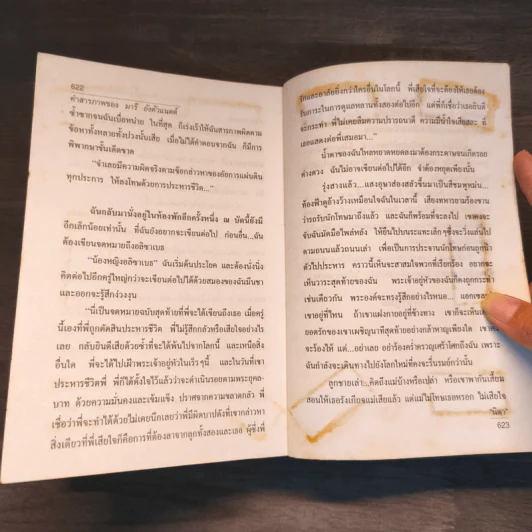 622
คำสารภาพของ มารี อังตัวแนตต์
ซ้ำซากจนฉันเบื่อหน่าย ในที่สุด ก็เร่งเร้าให้ฉันสารภาพผิดตาม
ข้อหาทั้งหลายทั้งปวงนั้นเสีย เมื่อไม่ได้คำตอบจากฉัน ก็มีการ
พิพากษาขั้นเด็ดขาด
"จำเลยมีความผิดจริงตามข้อกล่าวหาของอัยการแผ่นดิน
ทุกประการ ให้ลงโทษด้วยการประหารชีวิต..."
ฉันกลับมานั่งอยู่ในห้องพักอีกครั้งหนึ่ง ณ บัดนี้ยังมี
อีกเล็กน้อยเท่านั้น ที่ฉันยังอยากจะเขียนต่อไป ก่อนอื่น...ฉัน
ต้องเขียนจดหมายถึงอลิซาเบธ
"น้องหญิงอลิซาเบธ" ฉันเริ่มต้นประโยค และต้องนั่งนิ่ง
คิดต่อไปอีกครู่ใหญ่กว่าจะเขียนต่อไปได้ด้วยสมองของฉันมึนชา
และออกจะรู้สึกง่วงงุน
"นี่เป็นจดหมายฉบับสุดท้ายที่พี่จะได้เขียนถึงเธอ เมื่อครู่
นี้เองที่พี่ถูกตัดสินประหารชีวิต พี่ไม่รู้สึกกลัวหรือเสียใจอย่างไร
เลย กลับยินดีเสียด้วยซ้ำที่จะได้พ้นไปจากโลกนี้ และเหนือสิ่ง
อื่นใด พี่จะได้ไปเฝ้าพระเจ้าอยู่หัวในเร็วๆ นี้ และในวันที่เขา
ประหารชีวิตพี่ พี่ก็ได้ตั้งใจไว้แล้วว่าจะดำเนินรอยตามพระยุคล-
บาท ด้วยความมั่นคงและเข้มแข็ง ปราศจากความขลาดกลัว พี่
เชื่อว่าพี่จะทำได้ด้วยไม่เคยนึกเลยว่าพี่มีผิดบาปดังที่เขากล่าวหา
สิ่งเดียวที่พี่เสียใจก็คือการที่ต้องลาจากลูกทั้งสองและเธอ ผู้ซึ่งพี่
รักและอาลัยยิ่งกว่าใครอื่นในโลกนี้ พี่เสียใจที่จะต้องให้เธอต้อง
รับภาระในการดูแลหลานทั้งสองต่อไปอีก แต่พี่ก็เชื่อว่าเธอยินดี
จะกระทำ พี่ไม่เคยลืมความปรารถนาดี ความมีน้ำใจเสียสละ ที่
เธอแสดงต่อพี่เสมอมา..."
น้ำตาของฉันไหลหยาดหยดลงมาต้องกระดาษจนเกิดรอย
ด่างดวง ฉันไม่อาจเขียนต่อไปได้อีก จำต้องหยุดเพียงนั้น
รุ่งสางแล้ว...แสงอุษาส่องสลัวขึ้นมาเป็นสีชมพูหม่น...
ท้องฟ้าดูอ้างว้างเหมือนใจฉันในเวลานี้ เสียงทหารยามร้องขาน
ว่ารถรับนักโทษมาถึงแล้ว และฉันก็พร้อมที่จะลงไป เขาคงจะ
จับฉันมัดมือไพล่หลัง ให้ยืนไปบนรถแทะเล็กๆซึ่งจะวิ่งแล่นไป
ตามถนนแล้วถนนเล่า เพื่อเป็นการประจานนักโทษก่อนถูกนำ
ตัวไปประหาร คราวนี้เห็นจะสาสมใจพวกที่เรียกร้อง อยากจะ
เห็นวาระสุดท้ายของฉัน พระเจ้าอยู่หัวของฉันก็คงถูกกระทำ
เช่นเดียวกัน พระองค์จะทรงรู้สึกอย่างไรหนอ... แอกเซล
เขาอยู่ที่ไหน ถ้าเขาแฝงกายอยู่ที่ข้างทาง เขาก็จะเห็น
ยอดรักของเขาเผชิญนาทีสุดท้ายอย่างกล้าหาญเพียงใด เขา
จะร้องไห้ แต่...อย่าเลย อย่าร้องคร่ำครวญเศร้าโศกถึงฉัน เพราะ
ฉันกำลังจะเดินทางไปยังโลกใหม่ที่คงจะรื่นรมย์กว่านั้น
ลูกชายเล่า...คิดถึงแม่บ้างหรือเปล่า หรือเขาพากันเสี้ยม
สอนให้เธอรังเกียจแม่เสียแล้ว แต่แม่ไม่โทษเธอหรอก ไม่เสียใจ
623